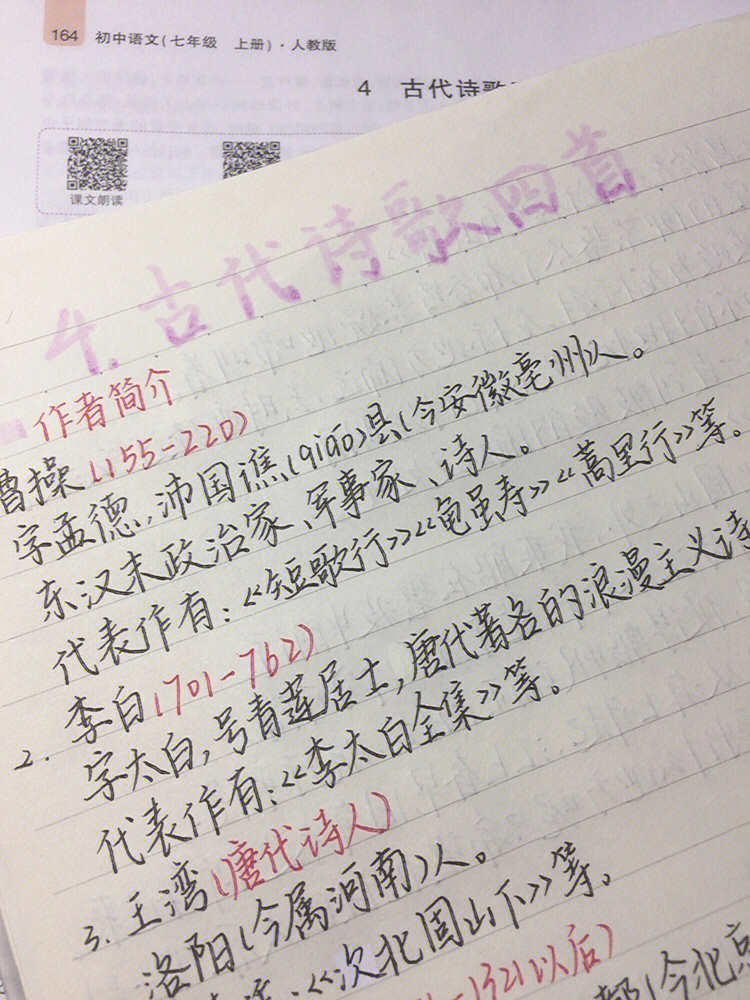 164 初中语文(七年级 上册)·人教版
4 古代诗歌
课文朗读
4.古代诗歌四首
作者简介
曹操(155-220)
字孟德,沛国谯(qiáo)县(今安徽亳州)人。
东汉末政治家、军事家、诗人。
代表作有:《短歌行》《龟虽寿》《蒿里行》等。
2. 李白(701-762)
字太白,号青莲居士,唐代著名的浪漫主义诗
代表作有:《李太白全集》等。
3. 王湾(唐代诗人)
洛阳(今属河南)人。
《次北固山下》等。
-1321以后)
都(今北京